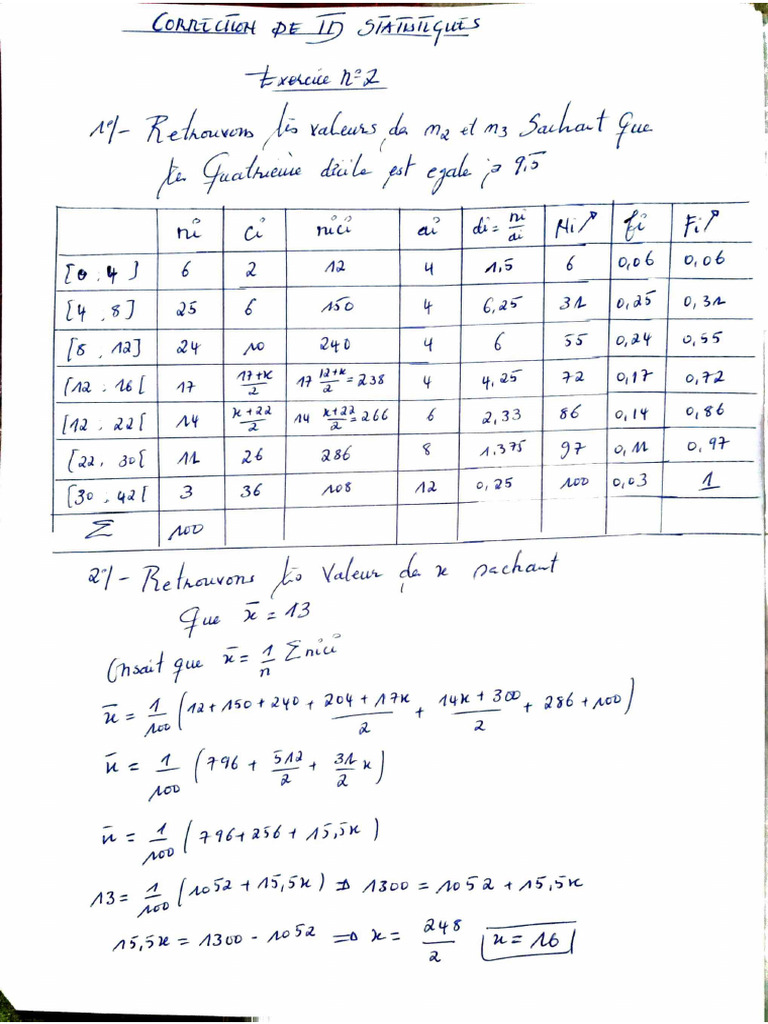 CORRECTION DE TD STATISTIQUES
Exercice N°2
1°/- Retrouvons les valeurs de n2 et n3 Sachant que
le Quatrième décile est egale à 9,5
ni ci nici ai di = ni/ai Ni↗ fi Fi↗
[0 , 4] 6 2 12 4 1,5 6 0,06 0,06
[4 , 8] 25 6 150 4 6,25 31 0,25 0,31
[8 , 12] 24 10 240 4 6 55 0,24 0,55
[12 , 16[ 17 17+x/2 17 12+x/2 = 238 4 4,25 72 0,17 0,72
[12 , 22[ 14 x+22/2 14 x+22/2 = 266 6 2,33 86 0,14 0,86
[22, 30[ 11 26 286 8 1.375 97 0,11 0,97
[30 , 42[ 3 36 108 12 0,25 100 0,03 1
Σ 100
2°/- Retrouvons la Valeur de x sachant
que x̄ = 13
Onsait que x̄ = 1/n Σnici
x̄ = 1/100 (12+150+240 + 204+17x/2 + 14x+300/2 + 286+100)
x̄ = 1/100 (796 + 512/2 + 31/2 x)
x̄ = 1/100 (796+256+15,5x)
13 = 1/100 (1052+15,5x) ⇒ 1300 = 1052 + 15,5x
15,5x = 1300 - 1052 ⇒ x = 248/2 x = 16